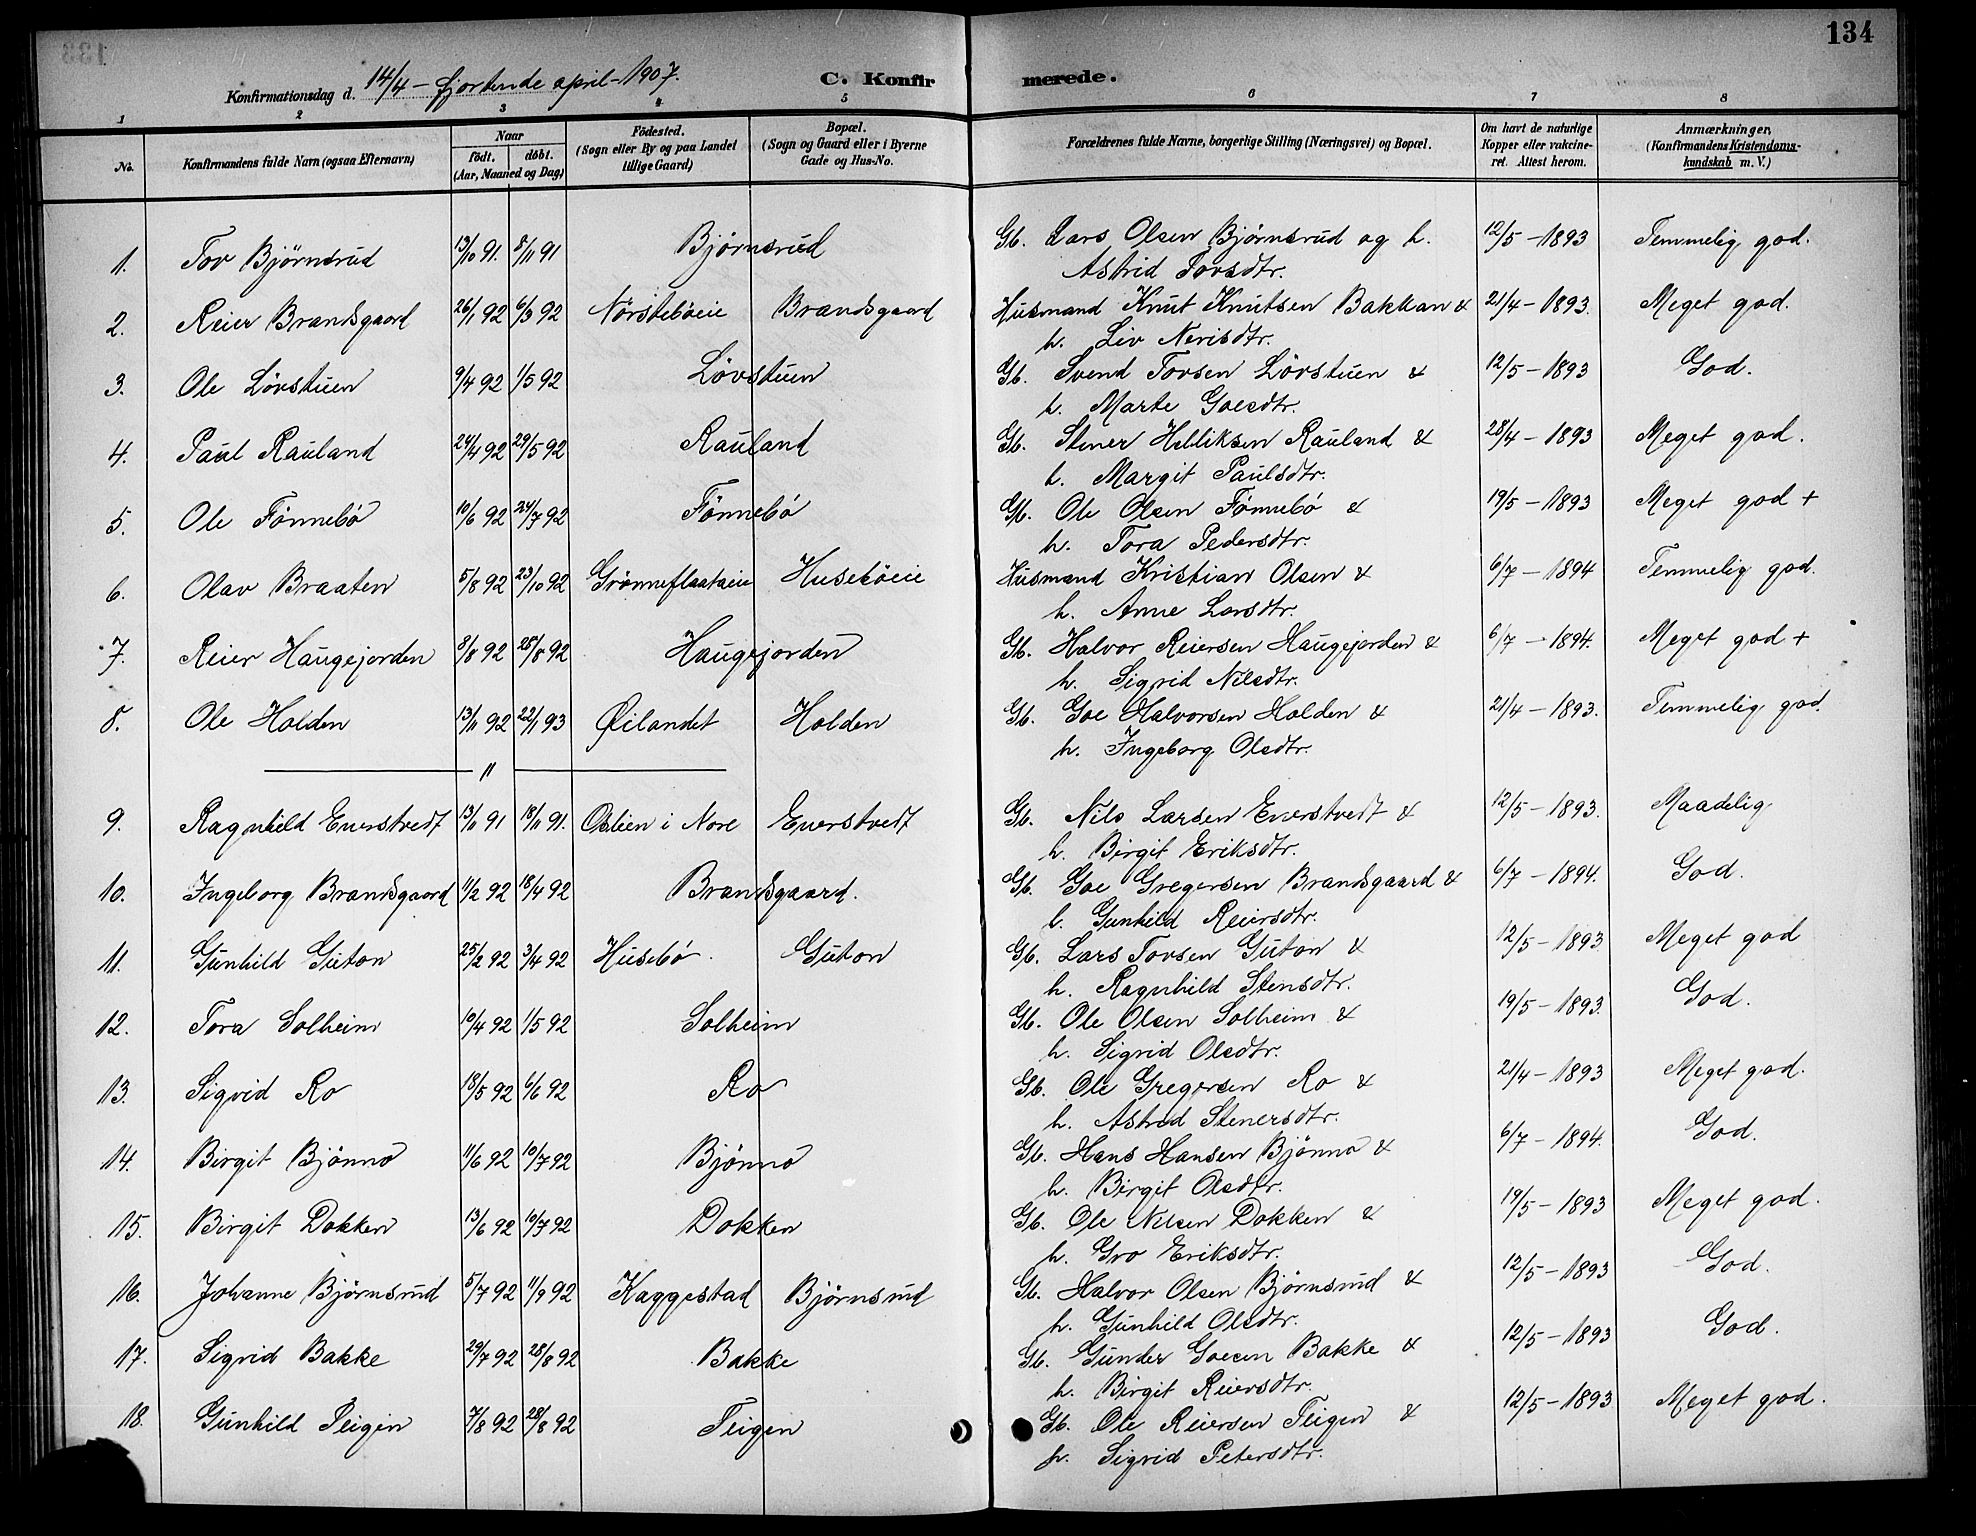 134
Konfirmationsdag d. 14/4 – fjortende april – 1907.
C. Konfirmerede.
1 2 3 4 5 6 7 8
No.
Konfirmandens fulde Navn (ogsaa Efternavn)
Naar
født. døbt.
(Aar, Maaned og Dag)
Fødested.
(Sogn eller By og paa Landet
tillige Gaard)
Bopæl.
(Sogn og Gaard eller i Byerne
Gade og Hus-No.
Forældrenes fulde Navne, borgerlige Stilling (Næringsvei) og Bopæl.
Om havt de naturlige
Kopper eller vakcine-
ret. Attest herom.
Anmærkninger,
(Konfirmandens Kristendoms-
kundskab m. V.)
1. Tov Bjørnsrud 13/10 91. 8/11 91 Bjørnsrud Gb. Lars Olsen Bjørnsrud og h. 12/5 – 1893 Temmelig god.
Astrid Tovsdtr.
2. Reier Brandsgaard 26/1 92 6/3 92 Nørstebøeie Brandsgaard Husmand Knut Knutsen Bakkan & 21/4 – 1893. Meget god.
h. Liv Nerisdtr.
3. Ole Løvstuen 9/4 92 1/5 92 Løvstuen Gb. Svend Tovsen Løvstuen & 12/5 – 1893 God.
h. Marte Goesdtr.
4. Paul Rauland 24/4 92 29/5 92 Rauland Gb. Stener Helliksen Rauland & 28/4 – 1893 Meget god.
h. Margit Paulsdtr.
5. Ole Fønnebø 10/6 92 24/7 92 Fønnebø Gb. Ole Olsen Fønnebø & 19/5 – 1893 Meget god +
h. Tora Pedersdtr.
6. Olav Braaten 5/8 92 23/10 92 Grønneflaataeie Husebøeie Husmand Kristian Olsen & 6/7 – 1894 Temmelig god.
h. Anne Larsdtr.
7. Reier Haugejorden 8/8 92 28/8 92 Haugejorden Gb. Halvor Reiersen Haugejorden & 6/7 – 1894. Meget god +
h. Sigrid Nilsdtr.
8. Ole Holden 13/11 92 22/1 93 Øilandet Holden Gb. Goe Halvorsen Holden & 21/4 – 1893. Temmelig god.
h. Ingeborg Olsdtr.
— " —
9. Ragnhild Enerstvedt 13/11 91 18/11 91. Oslien i Nore Enerstvedt Gb. Nils Larsen Enerstvedt & 12/5 – 1893. Maadelig
h. Birgit Eriksdtr.
10. Ingeborg Brandsgaard 11/2 92 18/4 92 Brandsgaard. Gb. Goe Gregersen Brandsgaard & 6/7 – 1894. God.
h. Gunhild Reiersdtr.
11. Gunhild Guton 25/2 92 3/4 92 Husebø. Guton Gb. Lars Tovsen Guton & 12/5 – 1893 Meget god
h. Ragnhild Stensdtr.
12. Tora Solheim 10/4 92 1/5 92 Solheim Gb. Ole Olsen Solheim & 19/5 – 1893. God.
h. Sigrid Olsdtr.
13. Sigrid Ro 18/5 92 6/6 92 Ro Gb. Ole Gregersen Ro & 21/4 – 1893 Meget god.
h. Astrid Stenersdtr.
14. Birgit Bjønno 11/6 92 10/7 92 Bjønno Gb. Hans Hansen Bjønno & 6/7 – 1894. God.
h. Birgit Olsdtr.
15. Birgit Dokken 13/6 92 10/7 92 Dokken Gb. Ole Nilsen Dokken & 19/5 – 1893 Meget god.
h. Gro Eriksdtr.
16. Johanne Bjørnsrud 5/7 92 11/9 92 Kaggestad Bjørnsrud Gb. Halvor Olsen Bjørnsrud & 12/5 – 1893 God.
h. Gunhild Olsdtr.
17. Sigrid Bakke 29/7 92 28/8 92 Bakke Gb. Gunder Goesen Bakke & 12/5 – 1893 God.
h. Birgit Reiersdtr.
18. Gunhild Teigen 7/8 92 28/8 92 Teigen Gb. Ole Reiersen Teigen & 12/5 – 1893 Meget god.
h. Sigrid Petersdtr.